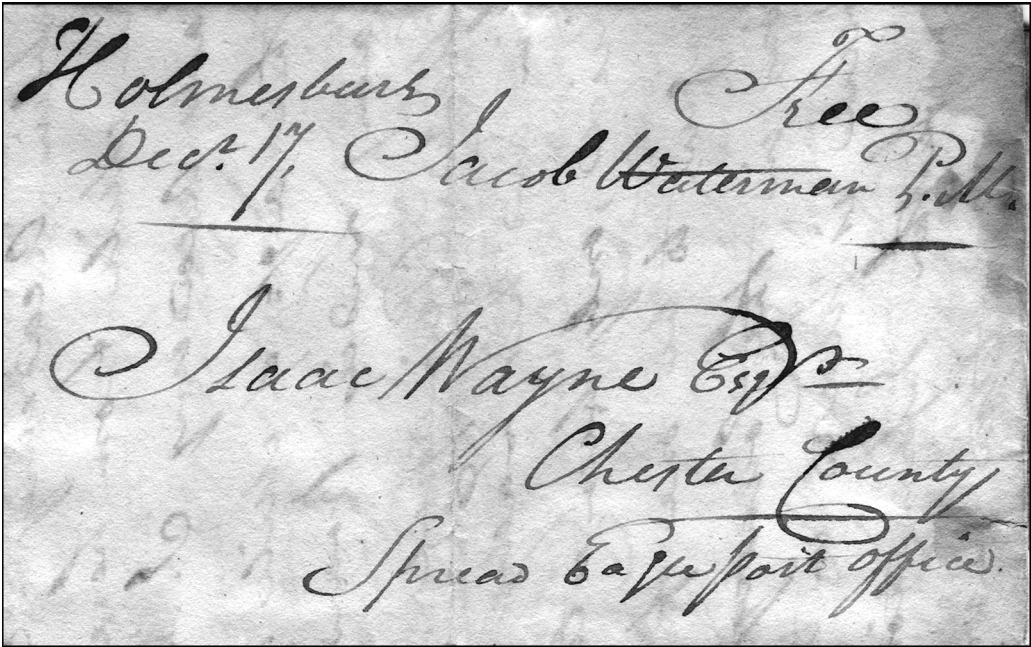 Holmesburg
Free
Decr. 17, Jacob Waterman P.M.
Isaac Wayne Esqr
Chester County
Spread Eagle post office.